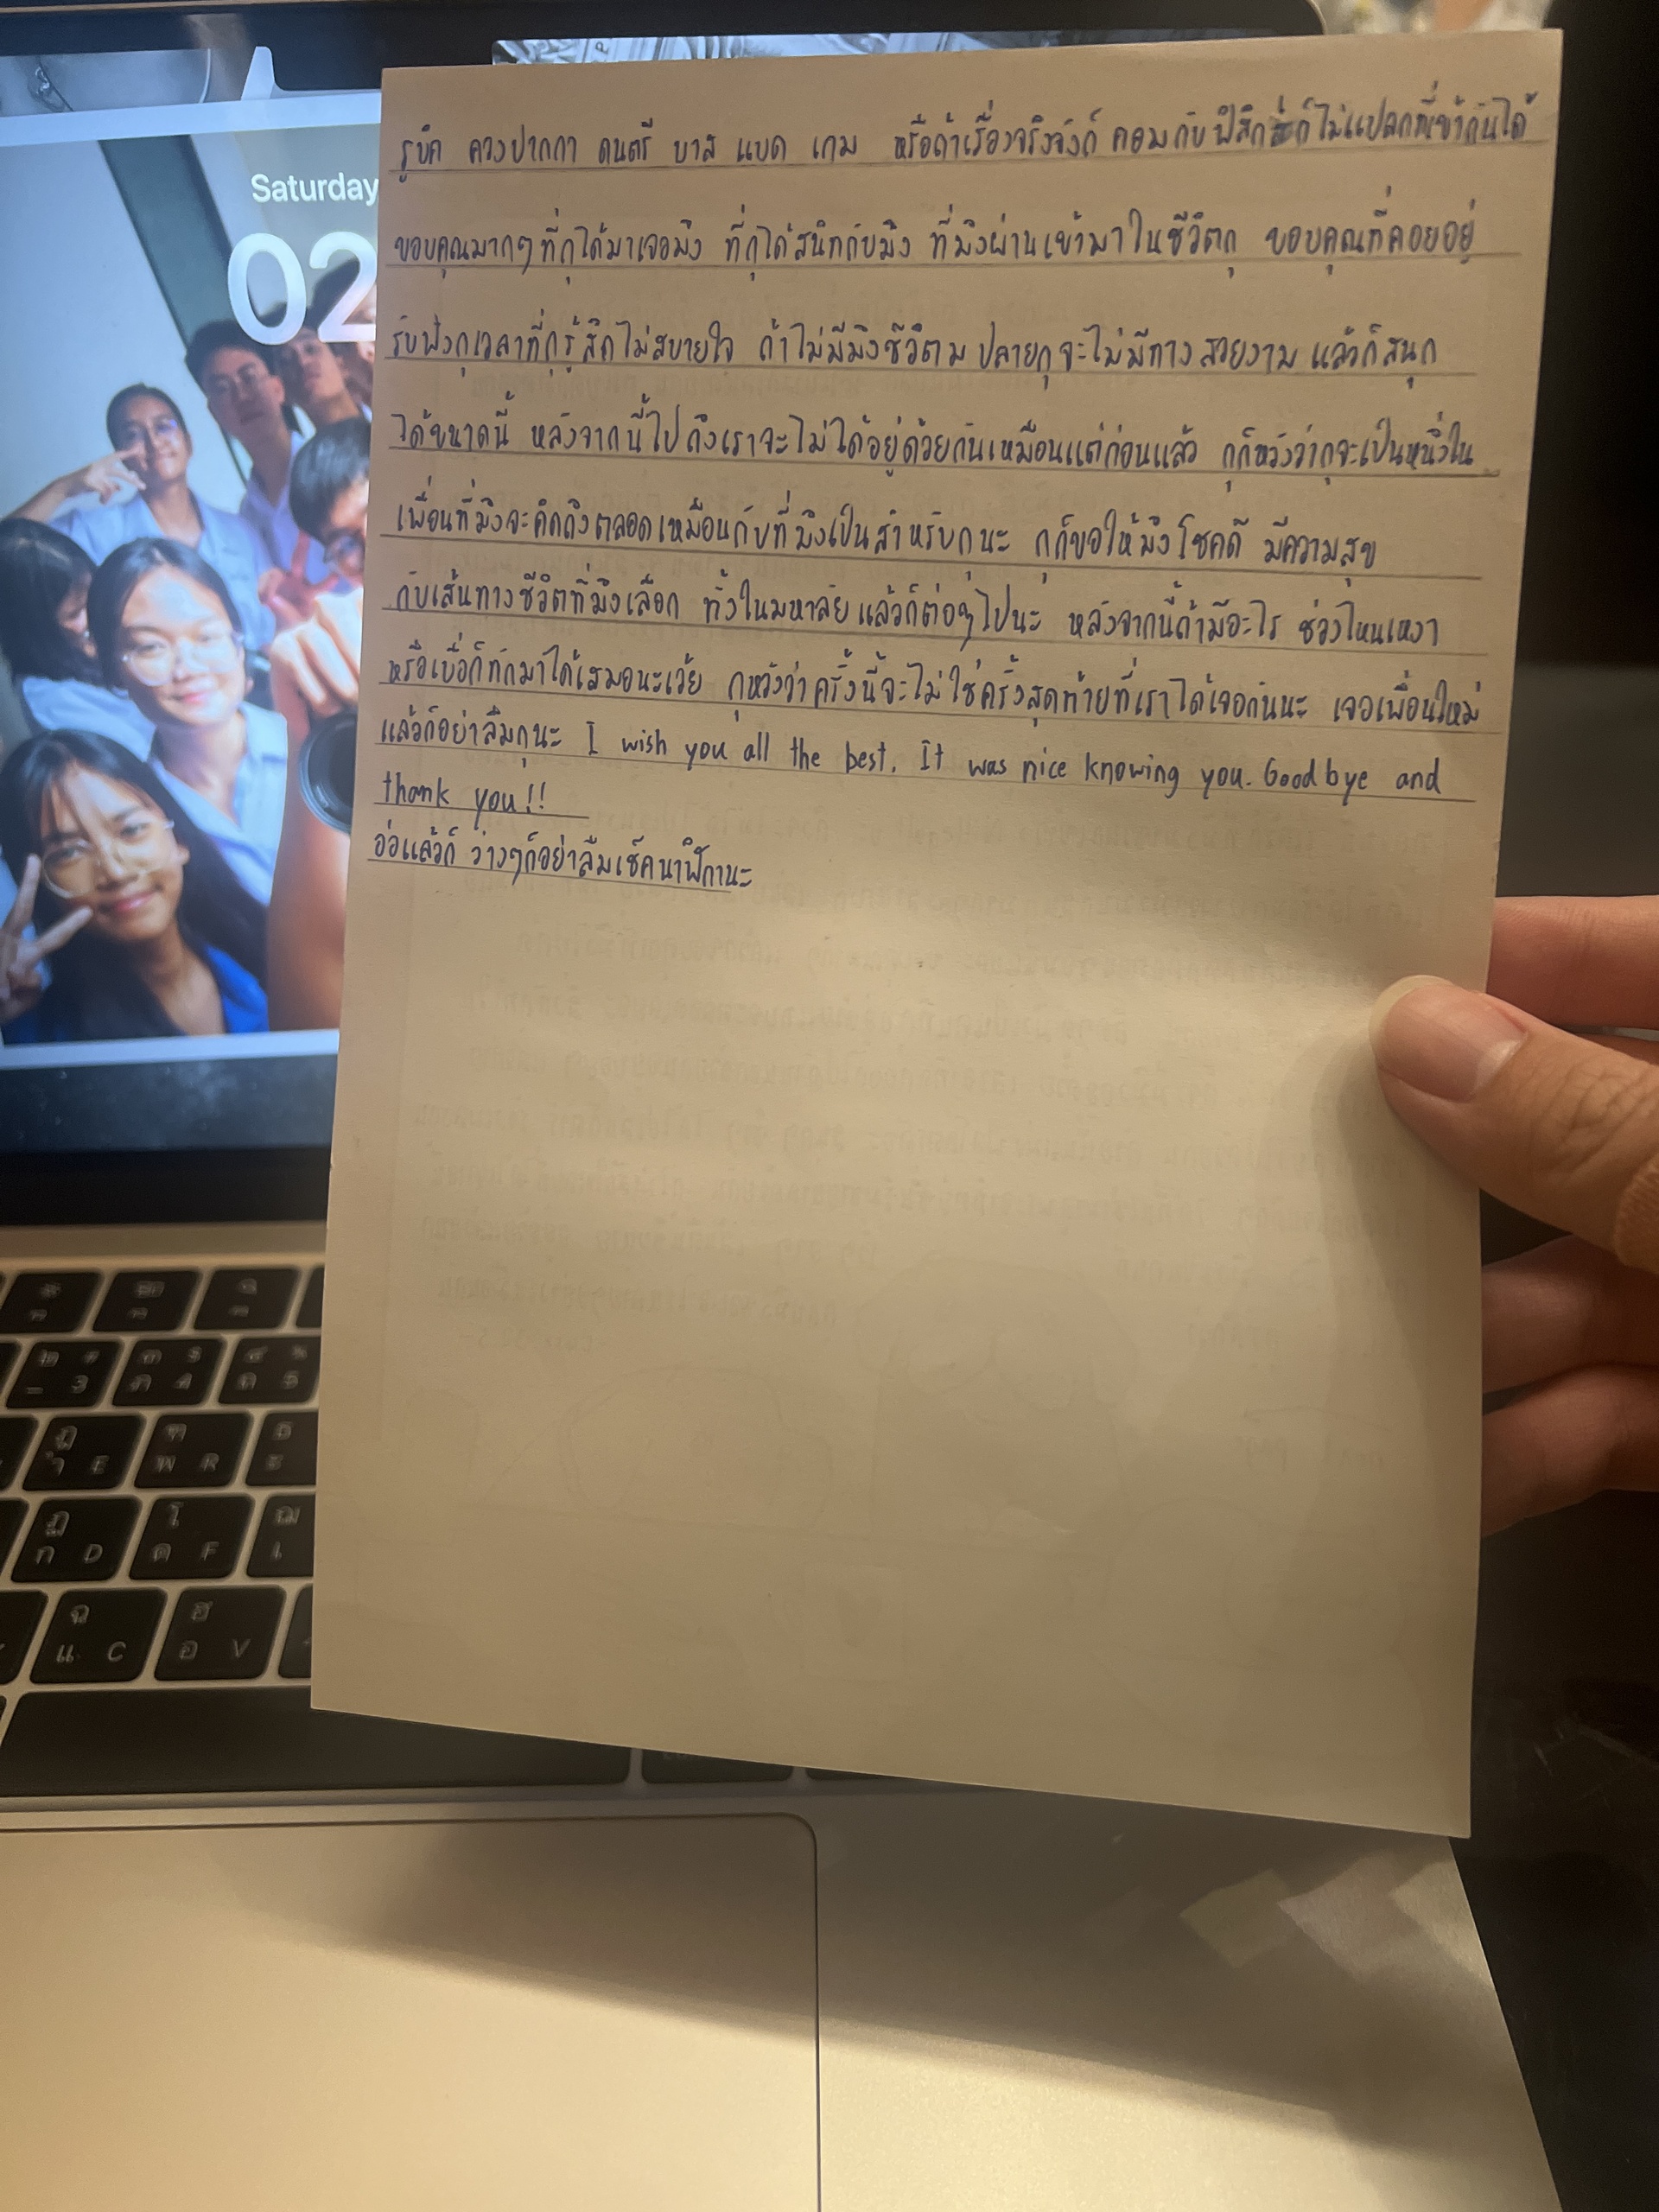 Saturday
02
รูบิค ควงปากกา ดนตรี บาส แบด เกม หรือถ้าเรื่องจริงจังก็ คอมกับฟิสิกส์ก็ไม่แปลกที่เข้ากันได้
ขอบคุณมากๆที่กุได้มาเจอมึง ที่กุได้สนิทกับมึง ที่มึงผ่านเข้ามาในชีวิตกุ ขอบคุณที่คอยอยู่
รับฟังกุเวลาที่กุรู้สึกไม่สบายใจ ถ้าไม่มีมึงชีวิตม ปลายกุจะไม่มีทางสวยงาม แล้วก็สนุก
ได้ขนาดนี้ หลังจากนี้ไปถึงเราจะไม่ได้อยู่ด้วยกันเหมือนแต่ก่อนแล้ว กุก็หวังว่ากุจะเป็นหนึ่งใน
เพื่อนที่มึงจะคิดถึงตลอดเหมือนกับที่มึงเป็นสำหรับกุนะ กุก็ขอให้มึงโชคดี มีความสุข
กับเส้นทางชีวิตที่มึงเลือก ทั้งในมหาลัย แล้วก็ต่อๆไปนะ หลังจากนี้ถ้ามีอะไร ช่วงไหนเหงา
หรือเบื่อก็ทักมาได้เสมอนะเว้ย กุหวังว่าครั้งนี้จะไม่ใช่ครั้งสุดท้ายที่เราได้เจอกันนะ เจอเพื่อนใหม่
แล้วก็อย่าลืมกุนะ I wish you all the best. It was nice knowing you. Goodbye and
thank you!!
อ่อแล้วก็ ว่างๆก็อย่าลืมเช็คนาฬิกานะ
E
R
D
F
C
V